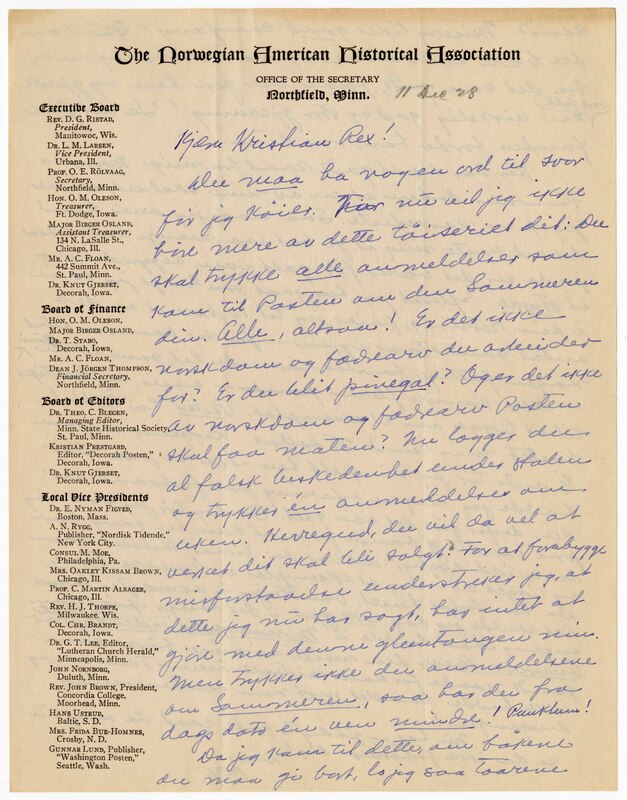 The Norwegian American Historical Association
OFFICE OF THE SECRETARY
Northfield, Minn.
11 Dec 28
Executive Board
REV. D. G. RISTAD,
President,
Manitowoc, Wis.
DR. L. M. LARSEN,
Vice President,
Urbana, Ill.
PROF. O. E. RÖLVAAG,
Secretary,
Northfield, Minn.
HON. O. M. OLESON,
Treasurer,
Ft. Dodge, Iowa.
MAJOR BIRGER OSLAND,
Assistant Treasurer,
134 N. LaSalle St.,
Chicago, Ill.
MR. A. C. FLOAN,
442 Summit Ave.,
St. Paul, Minn.
DR. KNUT GJERSET,
Decorah, Iowa.
Board of Finance
HON. O. M. OLESON,
MAJOR BIRGER OSLAND,
DR. T. STABO,
Decorah, Iowa,
MR. A. C. FLOAN,
DEAN J. JÖRGEN THOMPSON,
Financial Secretary,
Northfield, Minn.
Board of Editors
DR. THEO. C. BLEGEN,
Managing Editor,
Minn. State Historical Society,
St. Paul, Minn.
KRISTIAN PRESTGARD,
Editor, "Decorah Posten,"
Decorah, Iowa.
DR. KNUT GJERSET,
Decorah, Iowa.
Local Vice Presidents
DR. E. NYMAN FIGVED,
Boston, Mass.
A. N. RYGG,
Publisher, "Nordisk Tidende,"
New York City.
CONSUL M. MOE,
Philadelphia, Pa.
MRS. OAKLEY KISSAM BROWN,
Chicago, Ill.
PROF. C. MARTIN ALSAGER,
Chicago, Ill.
REV. H. J. THORPE,
Milwaukee, Wis.
COL. CHR. BRANDT,
Decorah, Iowa.
DR. G. T. LEE, Editor,
"Lutheran Church Herald,"
Minneapolis, Minn.
JOHN NORNBORG,
Duluth, Minn.
REV. JOHN BROWN, President,
Concordia College,
Moorhead, Minn.
HANS USTRUD,
Baltic, S. D.
MRS. FRIDA BUE-HOMNES,
Crosby, N. D.
GUNNAR LUND, Publisher,
"Washington Posten,"
Seattle, Wash.
Kjære Kristian Rex!
Du maa ha nogen ord til svar
før jeg køier. For nu vil jeg ikke
høre mere av dette tøiseriet dit: Du
skal trykke alle anmeldelser som
kom til Posten om den Sommeren
din. Alle, altsaa! Er det ikke
norskdom og fædrearv du arbeider
for? Er du blit pinegal? Og er det ikke
av norskdom og fædrearv Posten
skal faa maten? Nu lægger du
al falsk beskedenhet under stolen
og trykker én anmeldelse om
uken. Herregud, du vil da vel at
verket dit skal bli solgt. For at forebygge
misforstaaelse understreker jeg, at
dette jeg nu har sagt, har intet at
gjøre med denne glemtangen min.
Men trykker ikke du anmeldelsene
om Sommeren, saa har du fra
dags dato én ven mindre! Punktum!
Da jeg kam til dette, om bøkene
du maa gi bort, lo jeg saa taarene